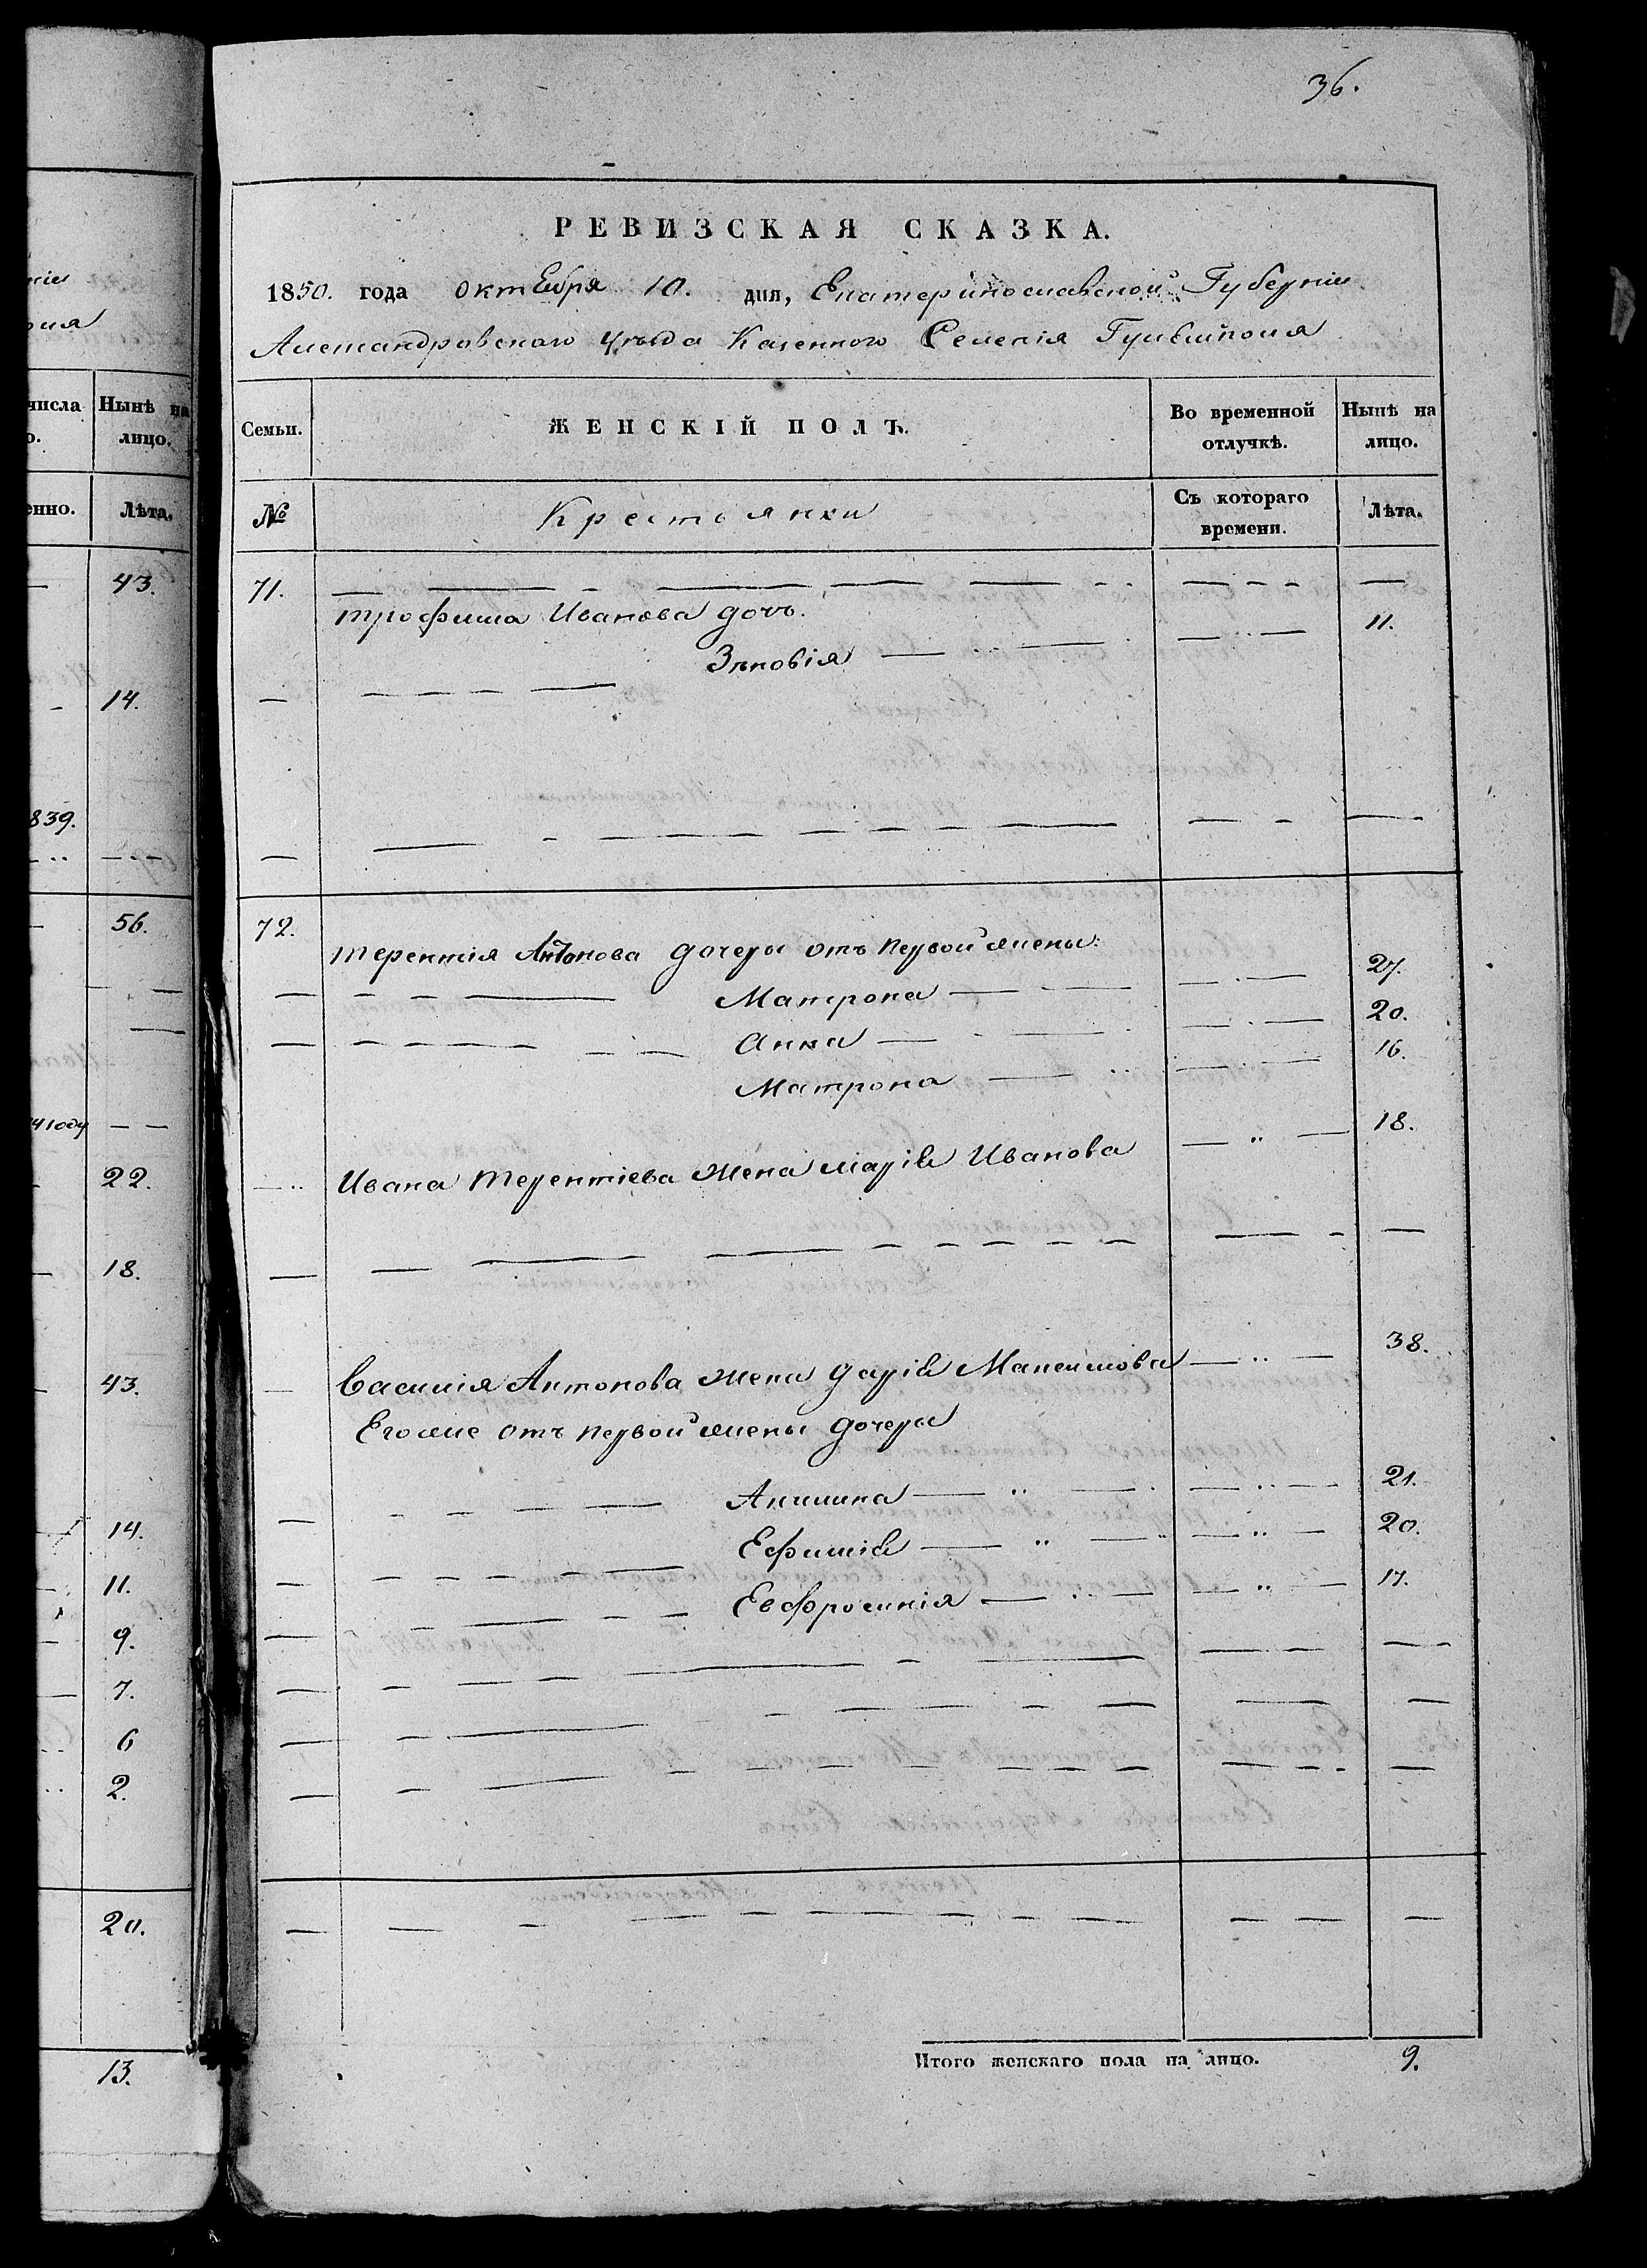 36.
РЕВИЗСКАЯ СКАЗКА.
1850. года октЕбря 10. дня, Екатеринославской Губерніи
Александровскаго уѣзда Казенного Селенія Гуляйполя
Семьи.
ЖЕНСКІЙ ПОЛЪ.
Во временной отлучкѣ.
Нынѣ на лицо.
№
Крестьянки
Съ котораго времени.
Лѣта.
71. — — — — —
Трофима Иванова дочь. 11.
Зѣновія — — —
— — — —
— — — — —
72.
Терентія Антонова дочеры отъ первой жены: 27.
— — — Матрона — — —
20.
— — — Анна — — —
16.
Матрона — — —
18.
Ивана Терентіева жена Марія Иванова — —
— — — — —
38.
Василія Антонова жена Дарія Максимова — —
Егоже отъ первой жены дочеры
— — — Акилина — — — 21.
— — — Ефимія — — — 20.
— — — Евфросинія — — — 17.
— — — — —
— — — — —
— — — — —
— — — — —
Итого женскаго пола на лицо. 9.
числа
Нынѣ на лицо.
Лѣта.
43.
14.
839.
56.
22.
18.
43.
14.
11.
9.
7.
6
2.
20.
13.